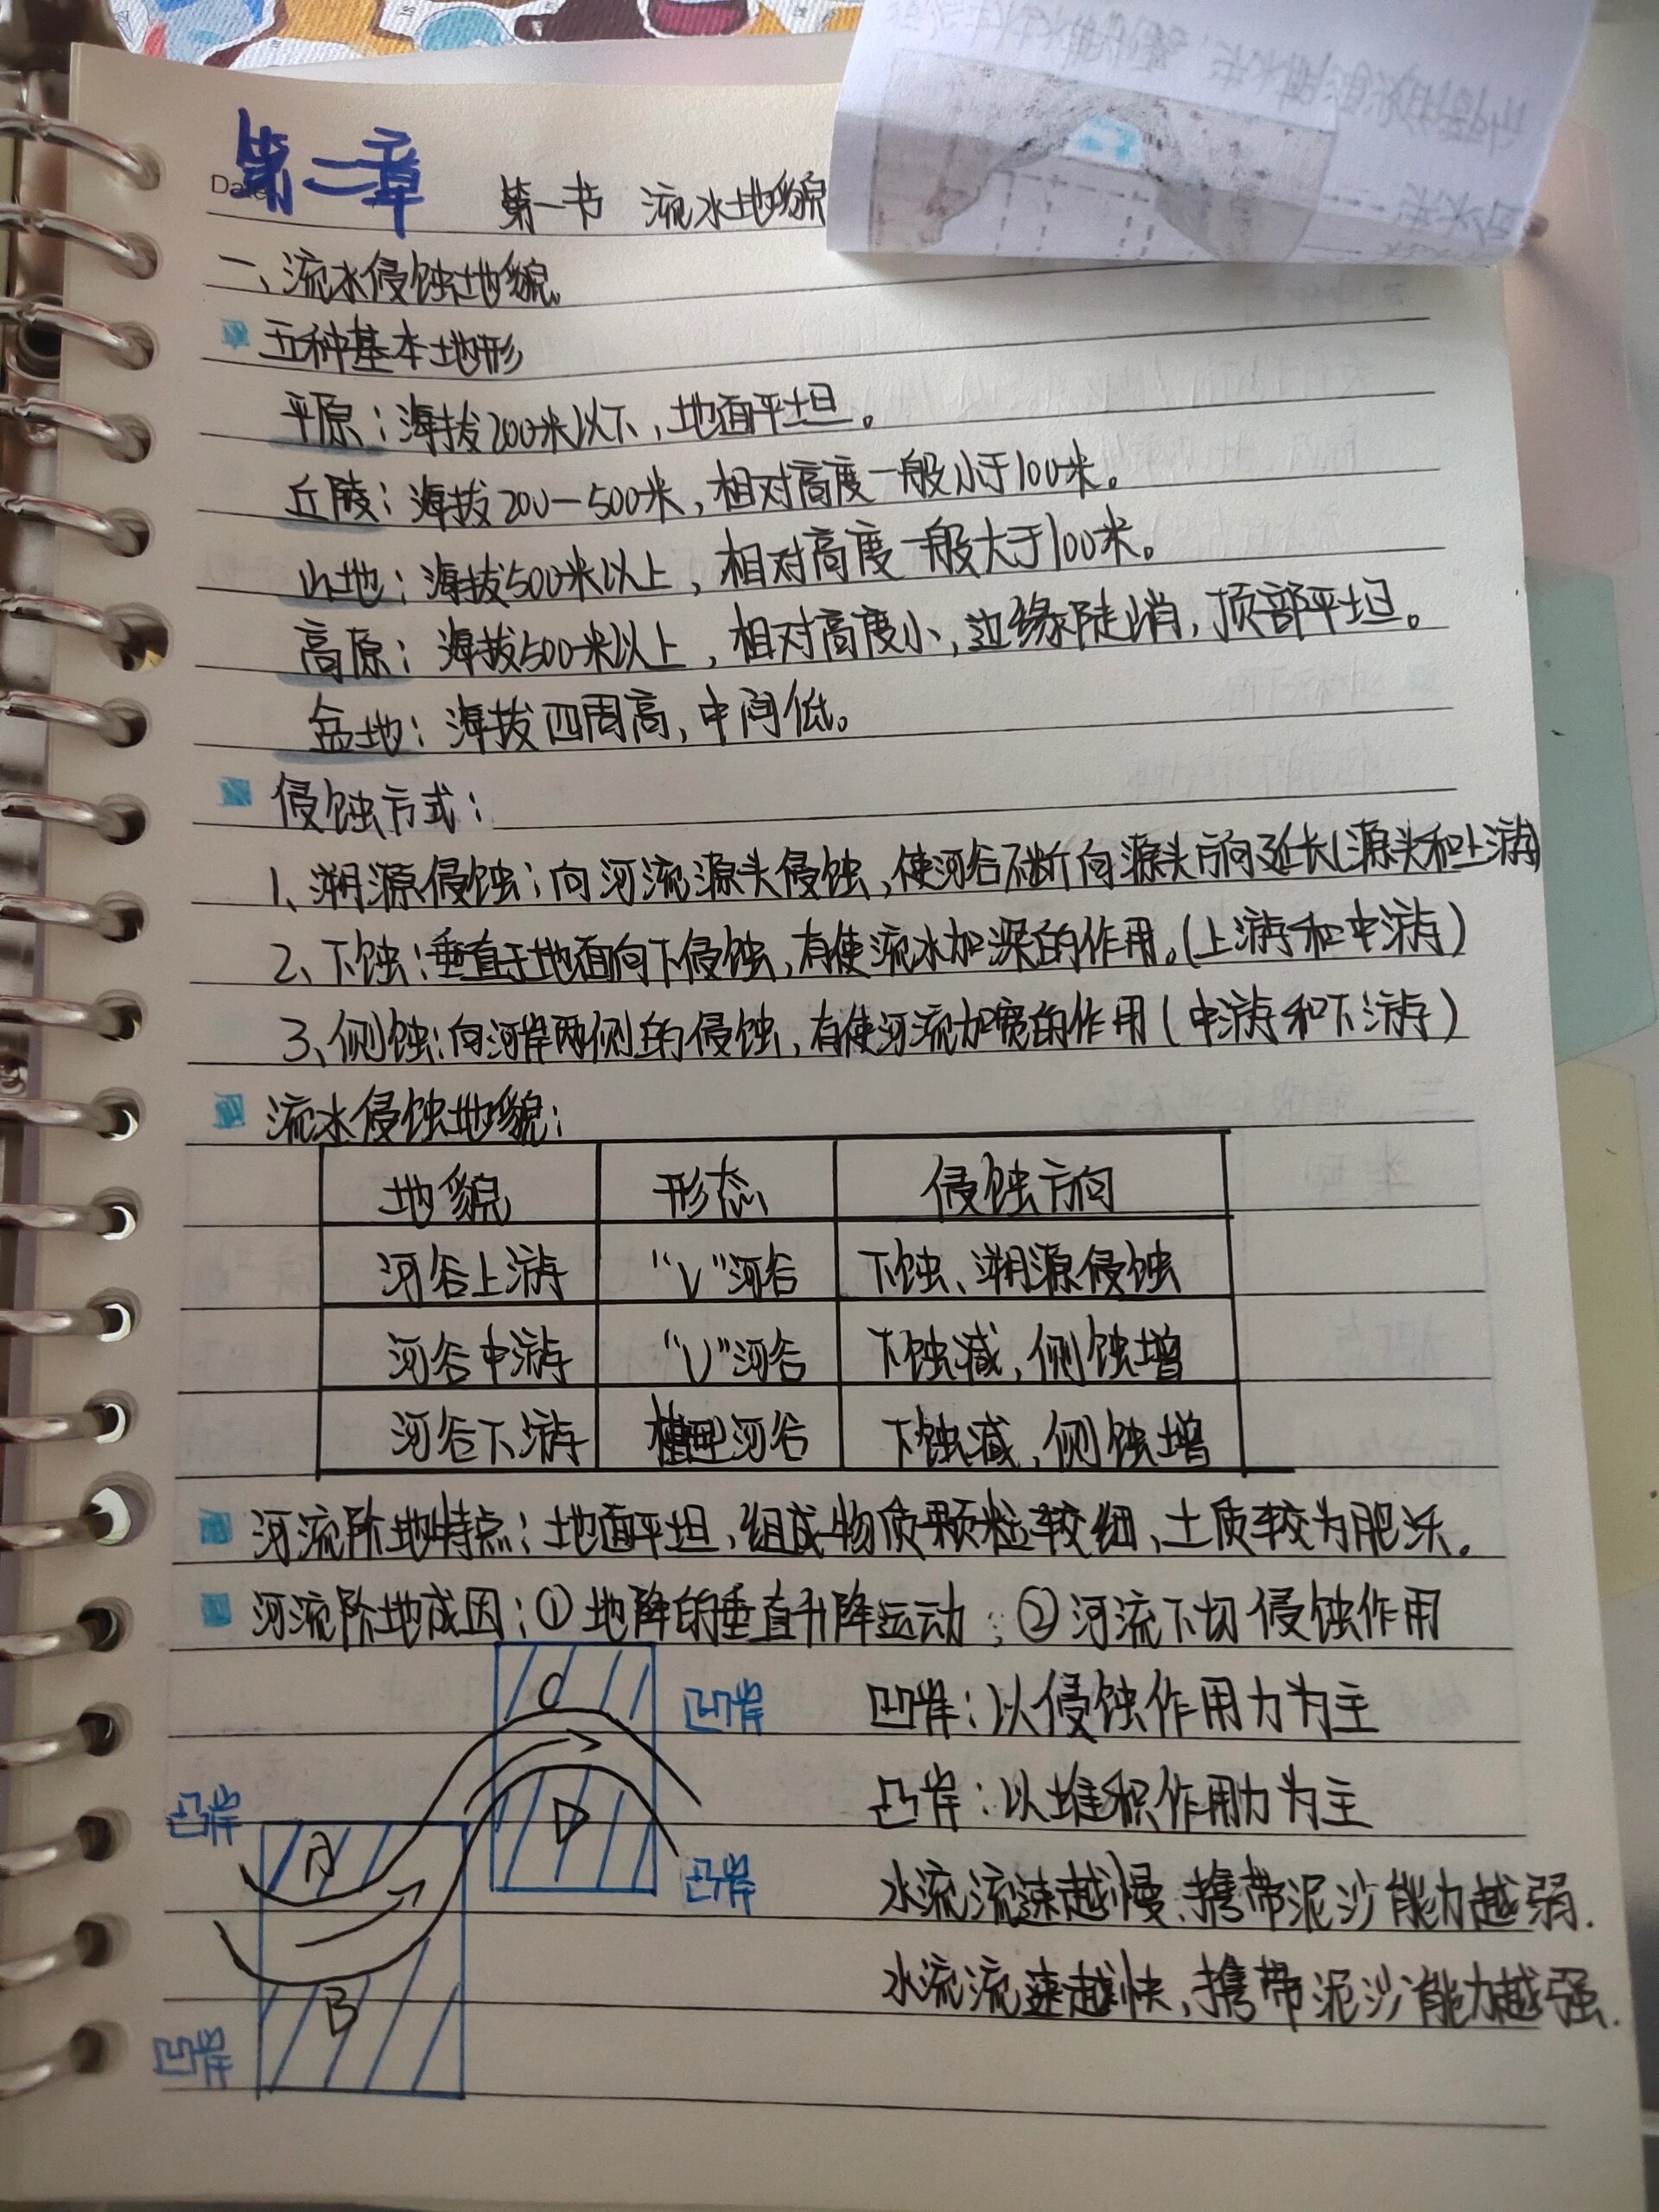 第二章
第一节 流水地貌
一、流水侵蚀地貌
五种基本地形
平原：海拔200米以下，地面平坦。
丘陵：海拔200—500米，相对高度一般小于100米。
山地：海拔500米以上，相对高度一般大于100米。
高原：海拔500米以上，相对高度小，边缘陡峭，顶部平坦。
盆地：海拔四周高，中间低。
侵蚀方式：
1、溯源侵蚀：向河流源头侵蚀，使河谷不断向源头方向延长（源头和上游）
2、下蚀：垂直于地面向下侵蚀，有使流水加深的作用。（上游和中游）
3、侧蚀：向河岸两侧的侵蚀，有使河流加宽的作用（中游和下游）
流水侵蚀地貌：
地貌 形态 侵蚀方向
河谷上游 “V”河谷 下蚀、溯源侵蚀
河谷中游 “U”河谷 下蚀减，侧蚀增
河谷下游 槽型河谷 下蚀减，侧蚀增
河流阶地特点：地面平坦，组成物质颗粒较细、土质较为肥沃。
河流阶地成因：①地降的垂直升降运动；②河流下切侵蚀作用
C 凹岸 凹岸：以侵蚀作用力为主
凸岸 D 凸岸：以堆积作用力为主
A 凸岸 水流流速越慢、携带泥沙能力越弱.
B 水流流速越快，携带泥沙能力越强.
凹岸